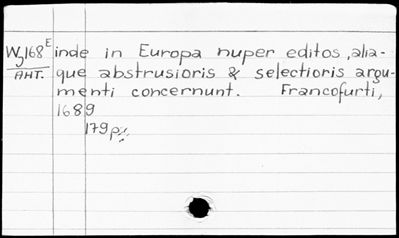 Wz168E inde in Europa nuper editos, alia-
AHT. que abstrusioris & selectioris argu-
menti concernunt. Francofurti,
1689
179p.